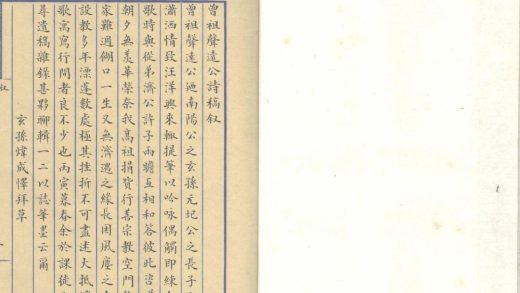 曾祖聲遠公詩稿叙
曾祖聲遠公迺南陽公之玄孫元圯公之長子
瀟洒情致汪洋興來輒提筆以吟咏偶觸即練
歌時與從弟濟公許子雨聸互相和荅彼此咨
朝夕無羨華榮奈我高祖捐貲行善宗教空門
家難過餬口一生又無濟遇之緣長困風塵之
設教多年漂蓬數處極其挫折不可盡述大抵
歌寓寫行間者良不少也丙寅暮春余於課徒
尊遺稿雜錄甚夥聊輯一二以誌筆墨云爾
玄孫煒成懌拜草
叙